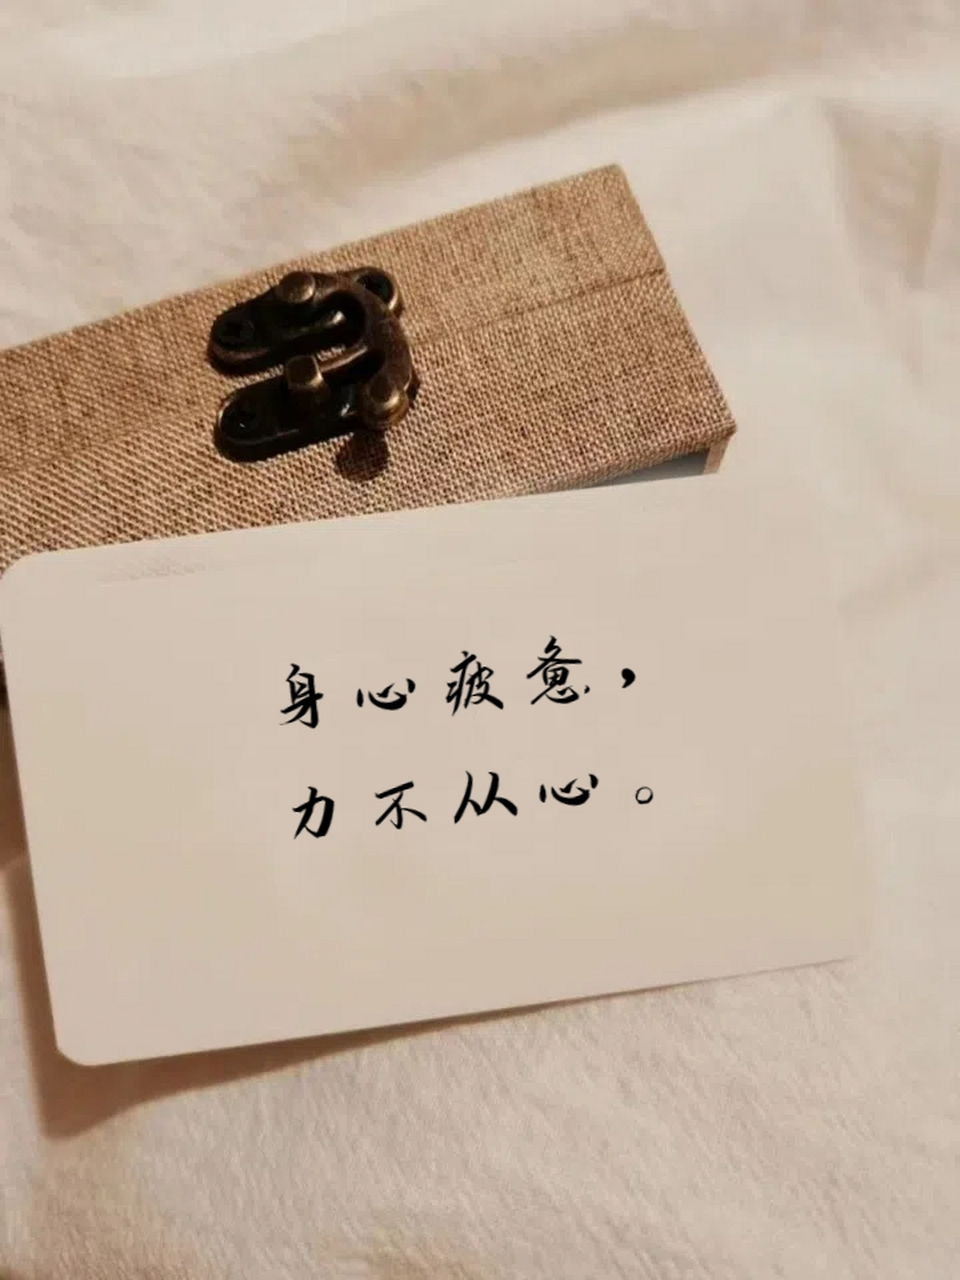 身心疲惫，
力不从心。